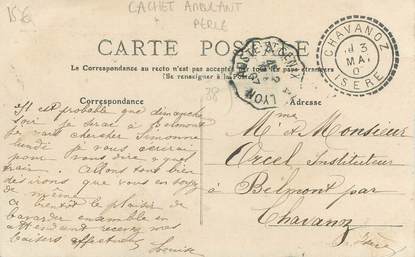 15€
CACHET AMBULANT
PERLÉ
CARTE POSTALE
La Correspondance au recto n'est pas acceptée par tous les pays étrangers
(Se renseigner à la Poste)
CHAVANOZ
3
MAI
ISÈRE
LYON
Correspondance
Adresse
(38)
Il est probable que dimanche
soir je serai à Belmont
chercher Simonne
lundi je vous écrirai
pour vous dire quel
train. Allons tout bien
désirons que vous en soyez
de même.
à bientôt le plaisir de
bavarder ensemble en
attendant recevez mes
baisers affectueux
Louise
Mme & Monsieur
Orcel Instituteur
à Bélmont par
Chavanoz
Isère